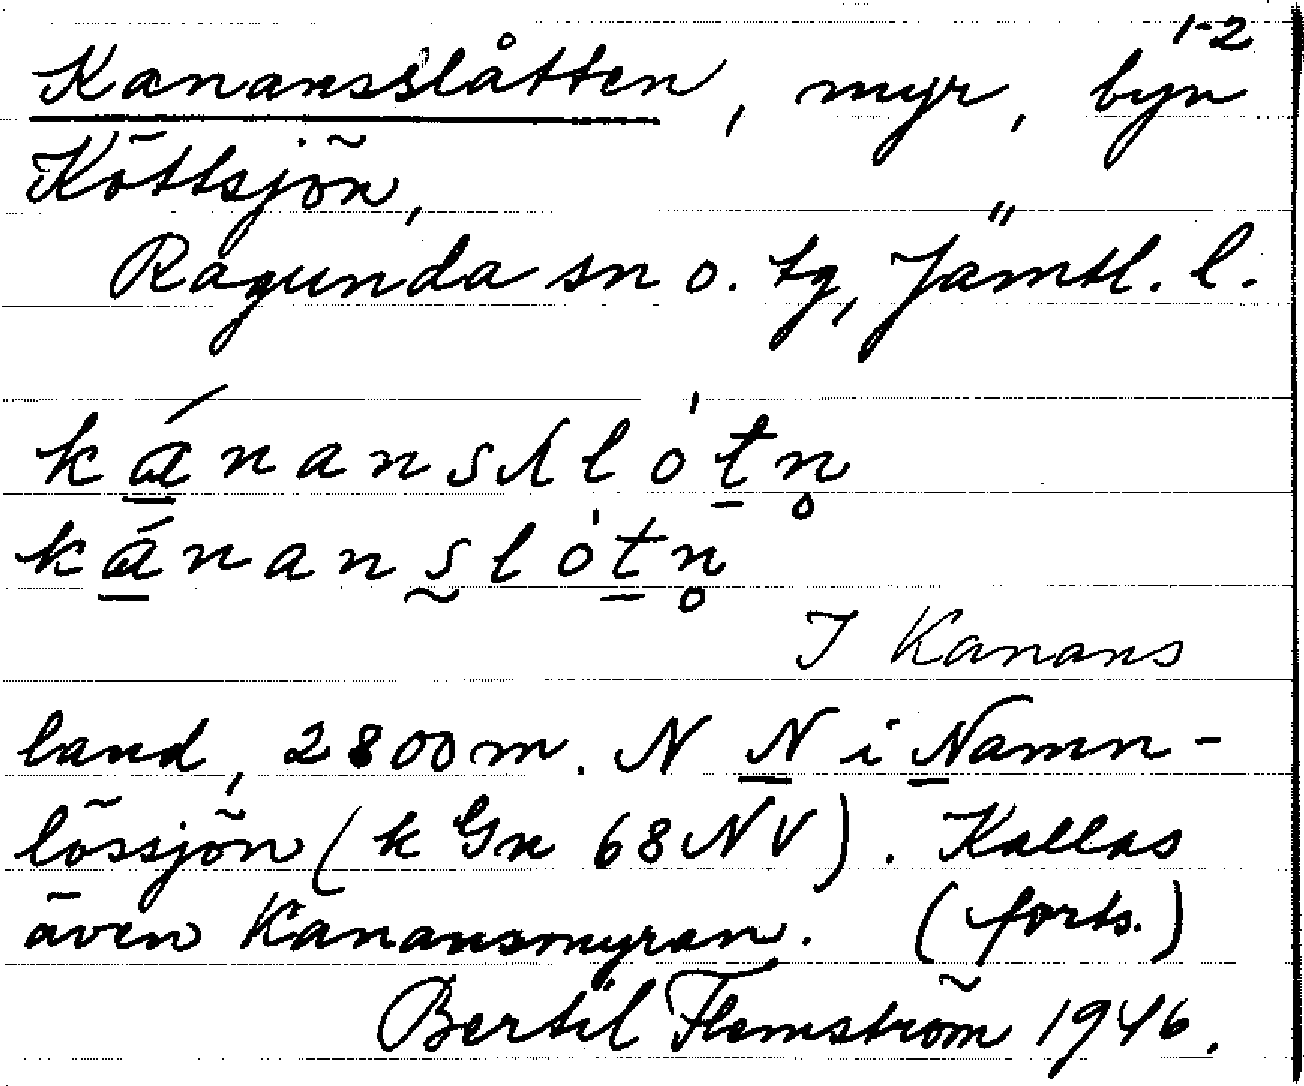 1-2
Kanansslåtten, myr, byn
Köttsjön,
Ragunda sn o. tg, Jämtl. l.
ká̱nans/lót̠n̥
ká̱nans̰lót̠n̥
I Kanans
land, 2800 m. N N i Namn-
lössjön (k Gn 68 NV). Kallas
även Kanansmyran. (forts.)
Bertil Flemström 1946.